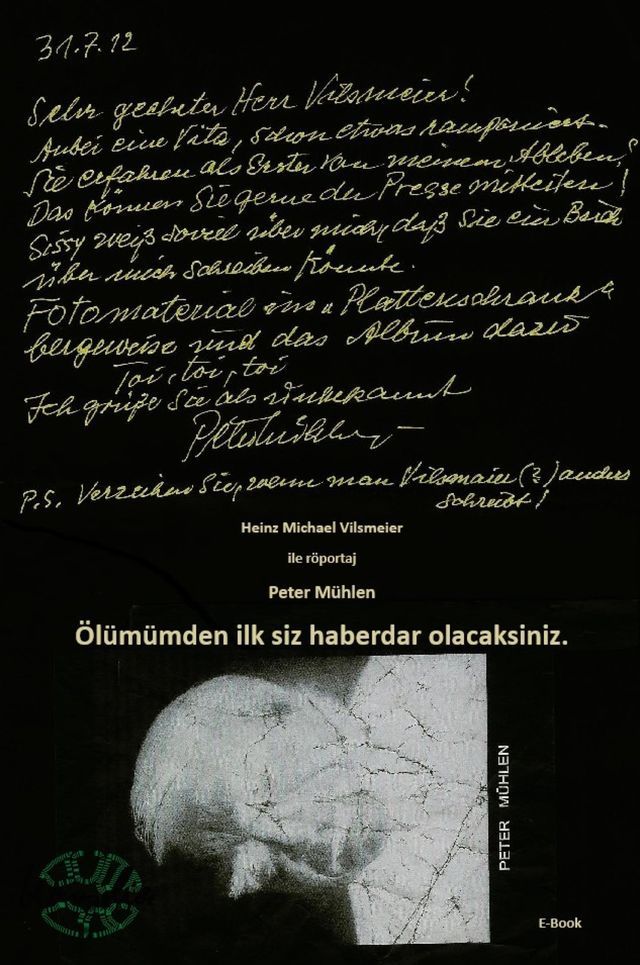 31.7.12
Sehr geehrter Herr Vilsmeier!
Anbei eine Vita, schon etwas ramponiert.
Sie erfahren als Erster von meinem Ableben!
Das können Sie gerne der Presse mitteilen!
Sissy weiß soviel über mich, daß Sie ein Buch
über mich schreiben könnte.
Fotomaterial im "Plattenschrank"
bergeweise und das Album dazu
Toi, toi, toi
Ich grüße Sie als unbekannt
Peter Mühlen
P.S. Verzeihen Sie, wenn man Vilsmaier (?) anders
schreibt!
Heinz Michael Vilsmeier
ile röportaj
Peter Mühlen
Ölümümden ilk siz haberdar olacaksiniz.
PETER MÜHLEN
E-Book